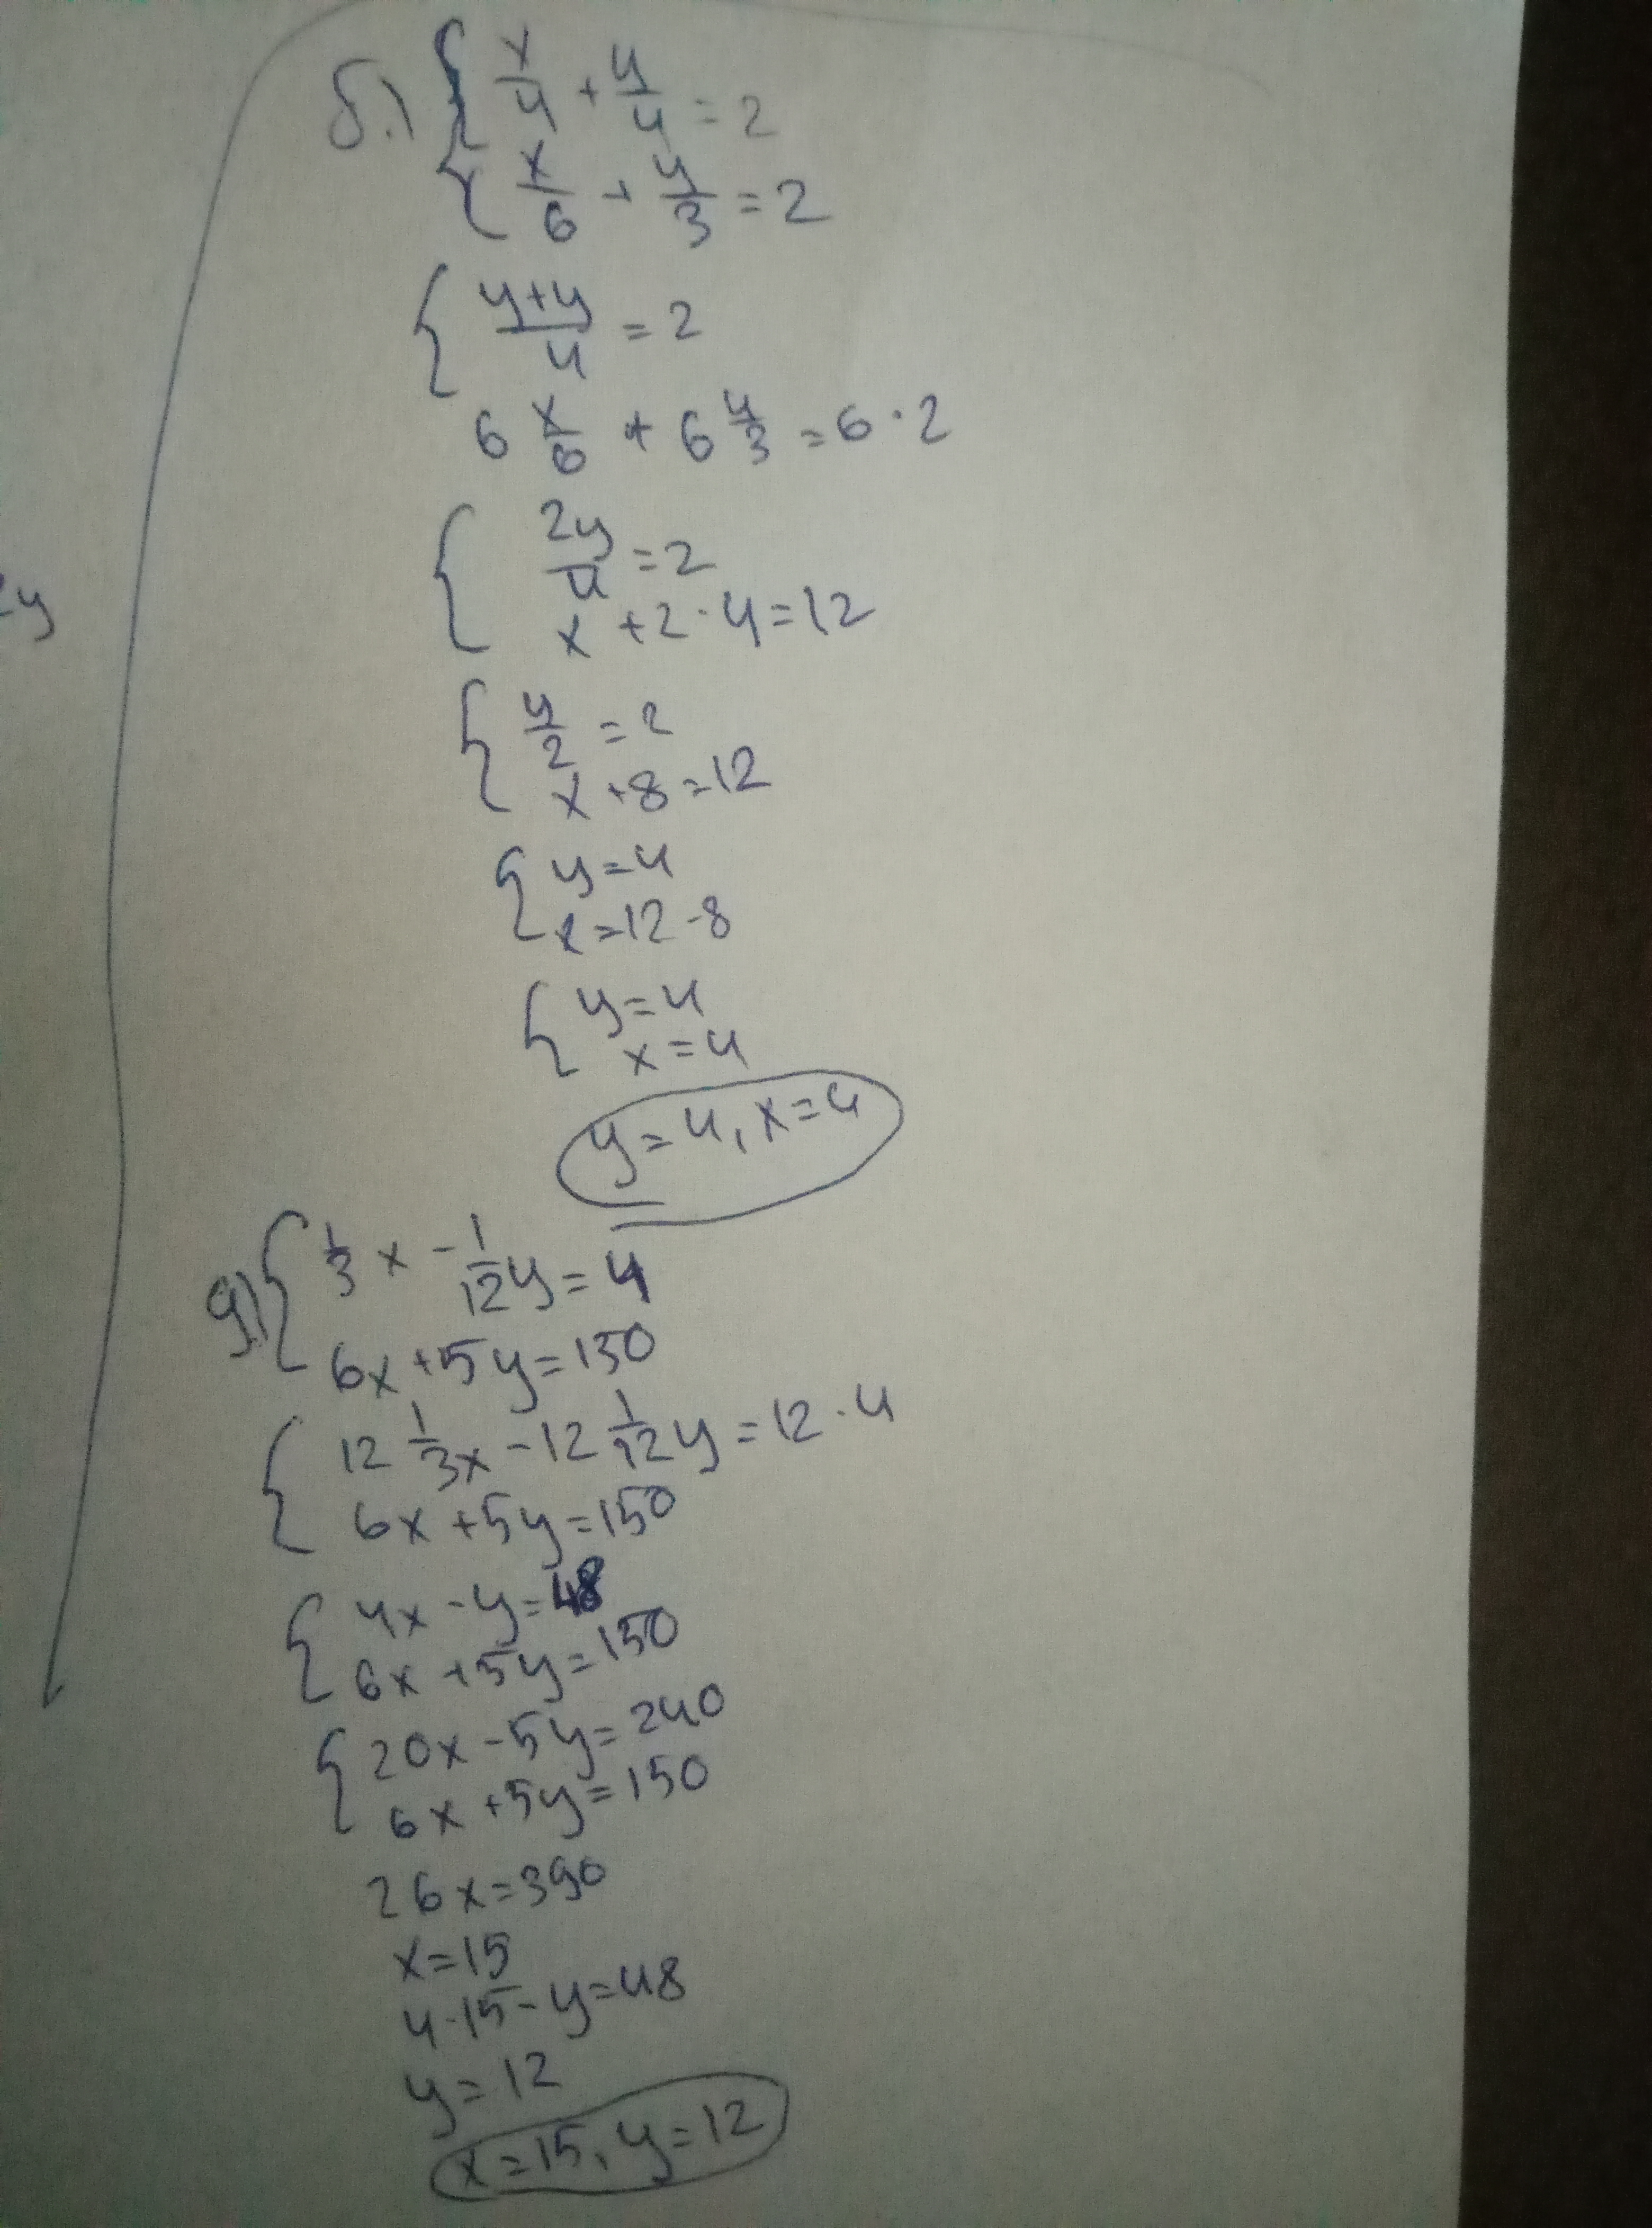 б.) { x/4 + y/4 = 2
x/6 + y/3 = 2
{ y+y/4 = 2
6 x/6 + 6 y/3 = 6 · 2
{ 2y/4 = 2
x + 2 · 4 = 12
{ y/2 = 2
x + 8 = 12
{ y = 4
x = 12 - 8
{ y = 4
x = 4
y = 4, x = 4
g) { 1/3 x - 1/12 y = 4
6x + 5y = 150
{ 12 1/3 x - 12 1/12 y = 12 · 4
6x + 5y = 150
{ 4x - y = 48
6x + 5y = 150
{ 20x - 5y = 240
6x + 5y = 150
26x = 390
x = 15
4·15 - y = 48
y = 12
x = 15, y = 12